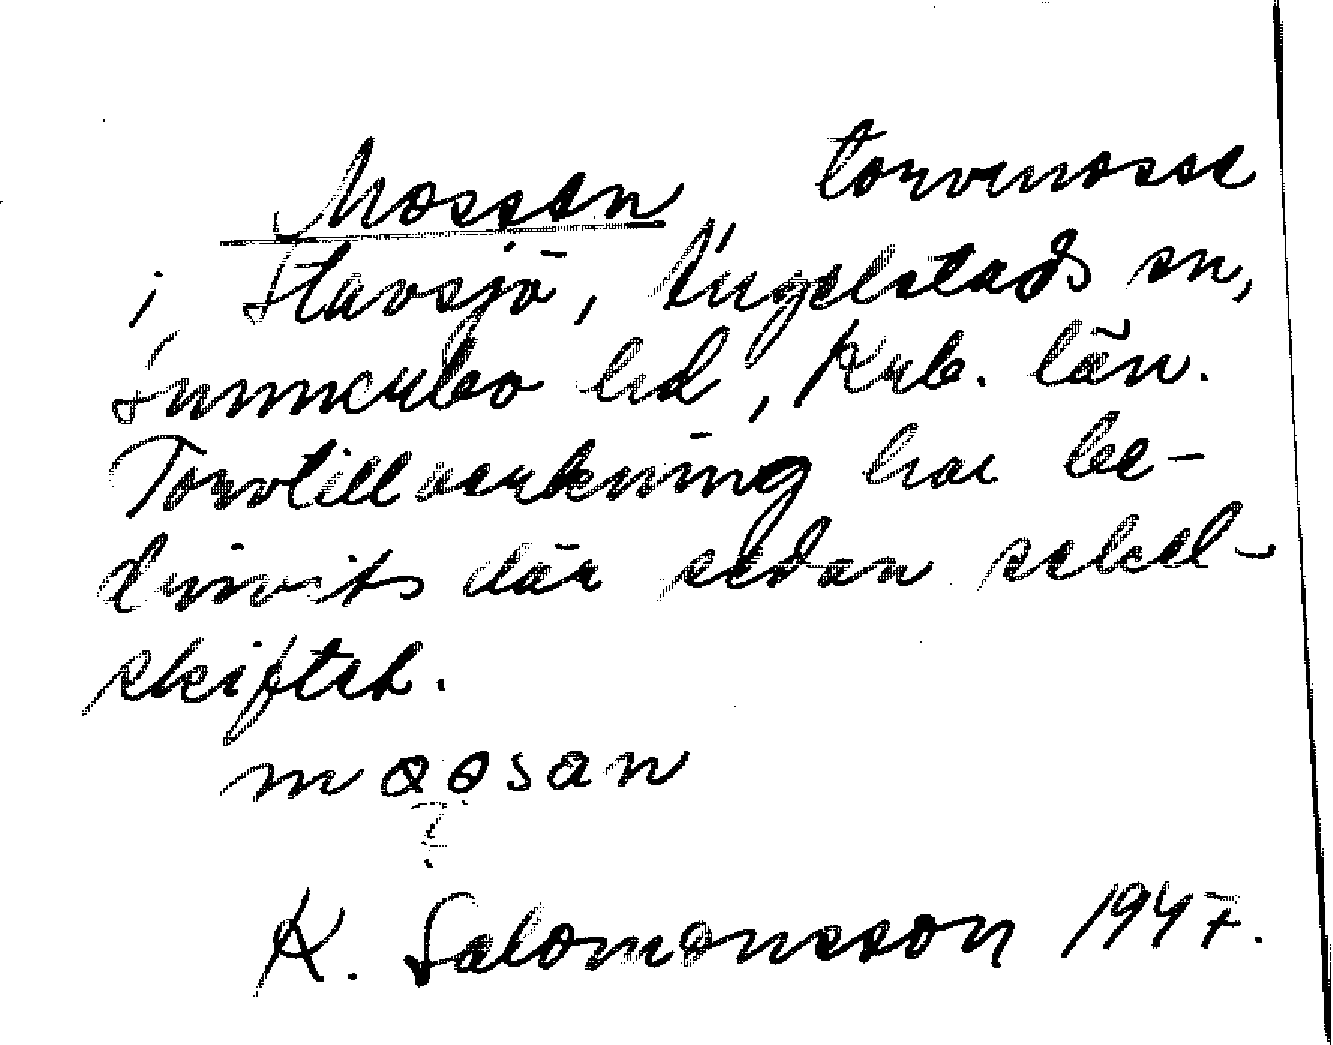 Mossen torvmosse
i Stavsjö, Ängelstads sn,
Sunnerbo hd, Krb. län.
Torvtillverkning har be-
drivits där sedan sekel-
skiftet.
moosan
?
K. Salomonsson 1947.